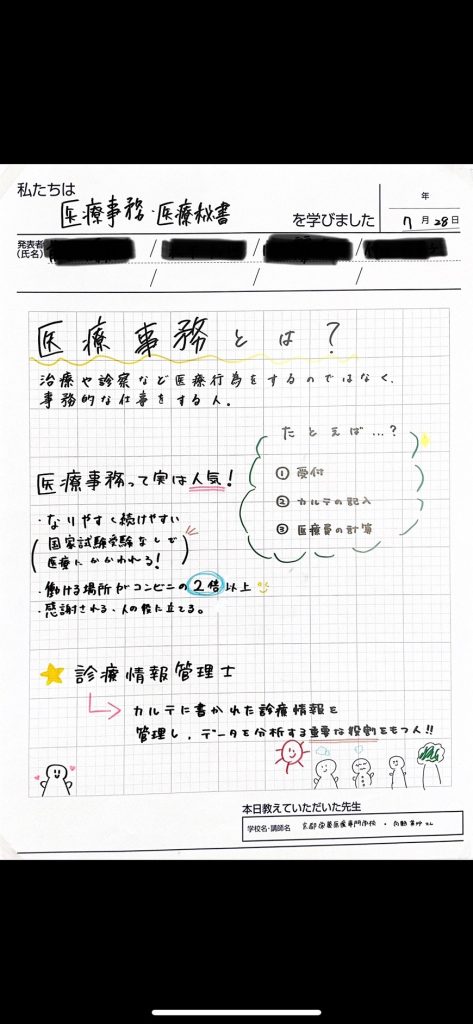 私たちは
医療事務・医療秘書
を学びました
年
7月28日
発表者
(氏名)
医療事務とは？
治療や診察など医療行為をするのではなく、
事務的な仕事をする人。
たとえば…?
① 受付
② カルテの記入
③ 医療費の計算
医療事務って実は人気！
・なりやすく続けやすい
(国家試験受験なしで
医療にかかわれる！)
・働ける場所がコンビニの2倍以上
・感謝される、人の役に立てる。
診療情報管理士
カルテに書かれた診療情報を
管理し、データを分析する重要な役割をもつ人!!
本日教えていただいた先生
学校名・講師名
京都栄養医療専門学校・